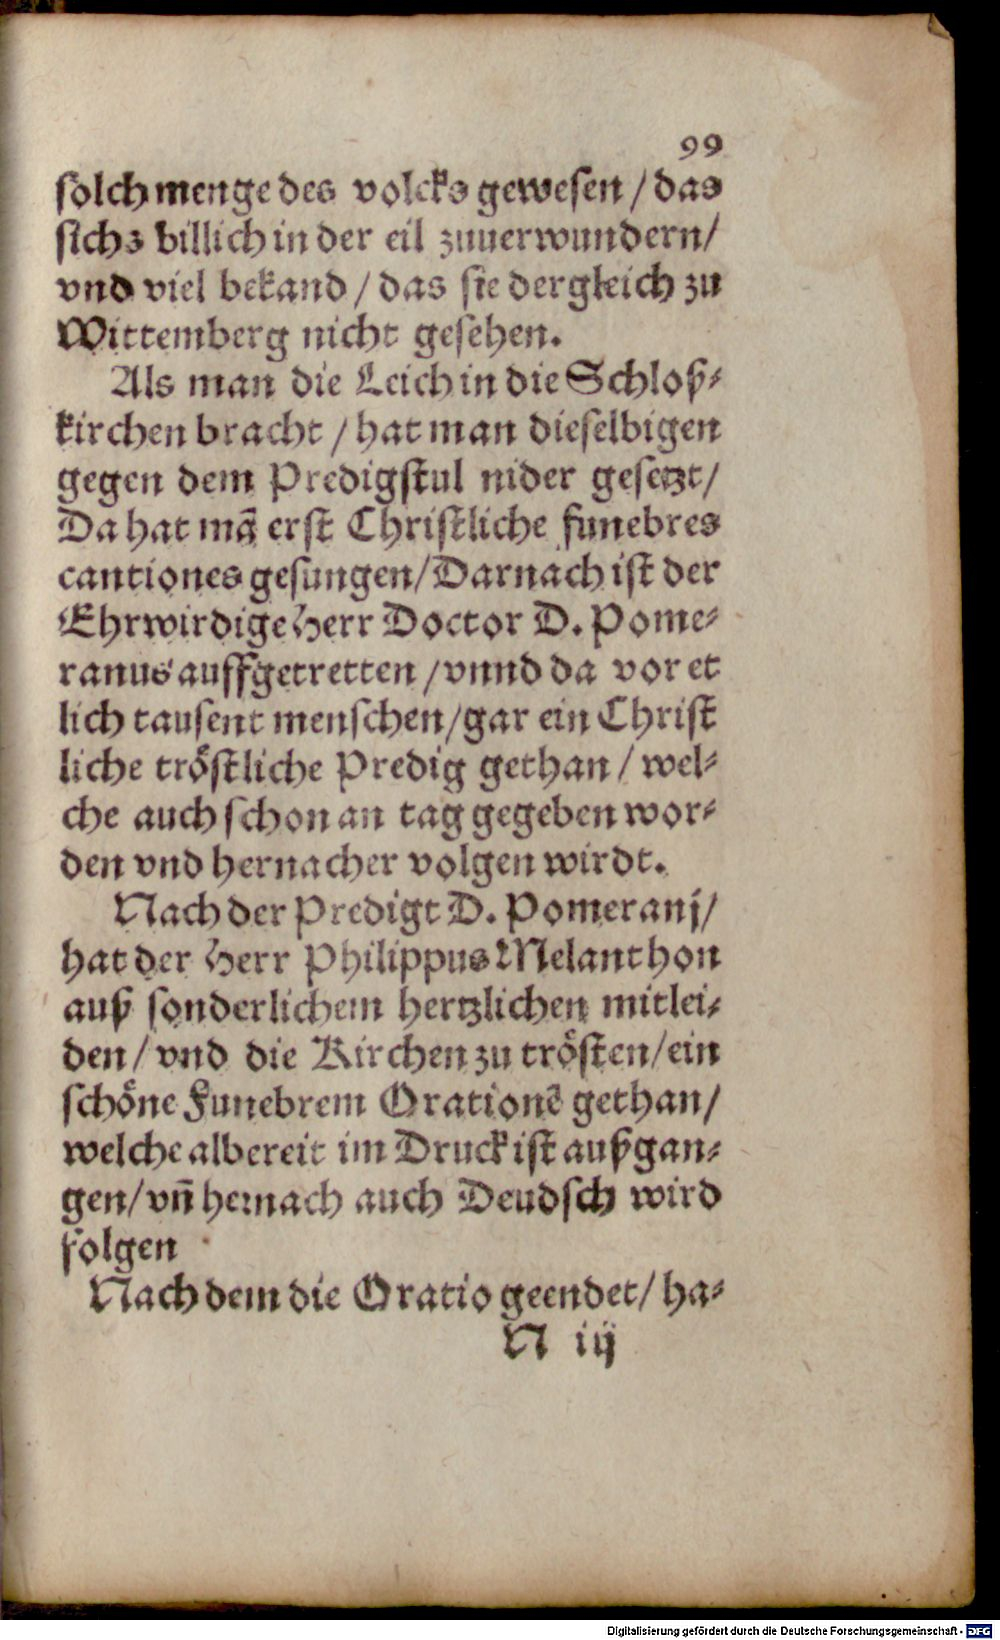 99
solch menge des volcks gewesen / das
sichs billich in der eil zuuerwundern/
vnd viel bekand / das sie dergleich zu
Wittemberg nicht gesehen.
Als man die Leich in die Schloß⸗
kirchen bracht / hat man dieselbigen
gegen dem Predigstul nider gesetzt/
Da hat mā erst Christliche funebres
cantiones gesungen/ Darnach ist der
Ehrwirdige Herr Doctor D. Pome⸗
ranus auffgetretten / vnnd da vor et
lich tausent menschen/ gar ein Christ
liche tröstliche Predig gethan / wel⸗
che auch schon an tag gegeben wor⸗
den vnd hernacher volgen wirdt.
Nach der Predigt D. Pomeranj/
hat der Herr Philippus Melanthon
auß sonderlichem hertzlichen mitlei⸗
den / vnd die Kirchen zu trösten/ ein
schöne Funebrem Orationē gethan/
welche albereit im Druck ist außgan⸗
gen/ vn̄ hernach auch Deudsch wird
folgen
Nach dem die Oratio geendet/ ha⸗
N iij
Digitalisierung gefördert durch die Deutsche Forschungsgemeinschaft - DFG